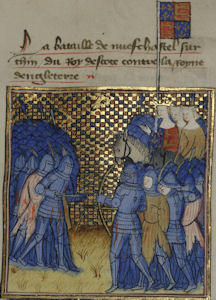 La bataille de nuefchastel sur
thin du Roy descoce contre la royne
dengleterre